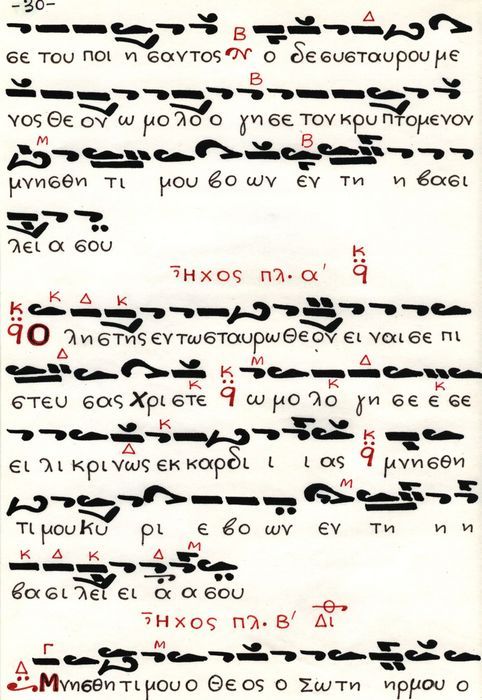 -30-
σε του ποι η σαντος ο δε συσταυρου με
νος Θε ον ω μο λο ο γη σε τον κρυ πτομενον
μνησθη τι μου βο ων εν τη η βασι
λει α σου
Ηχος πλ. α'
Ο λη στης εν τω σταυρω Θε ον ει ναι σε πι
στευ σας Χρι στε ω μο λο γη σε ε σε
ει λι κρι νως εκ καρδι ι ι ας μνη σθη
τι μου κυ ρι ε βο ων εν τη η η
βα σι λει ει α α σου
Ηχος πλ. Β' Δι
Μνησθη τι μου ο Θε ος ο Σω τη ηρ μου ο